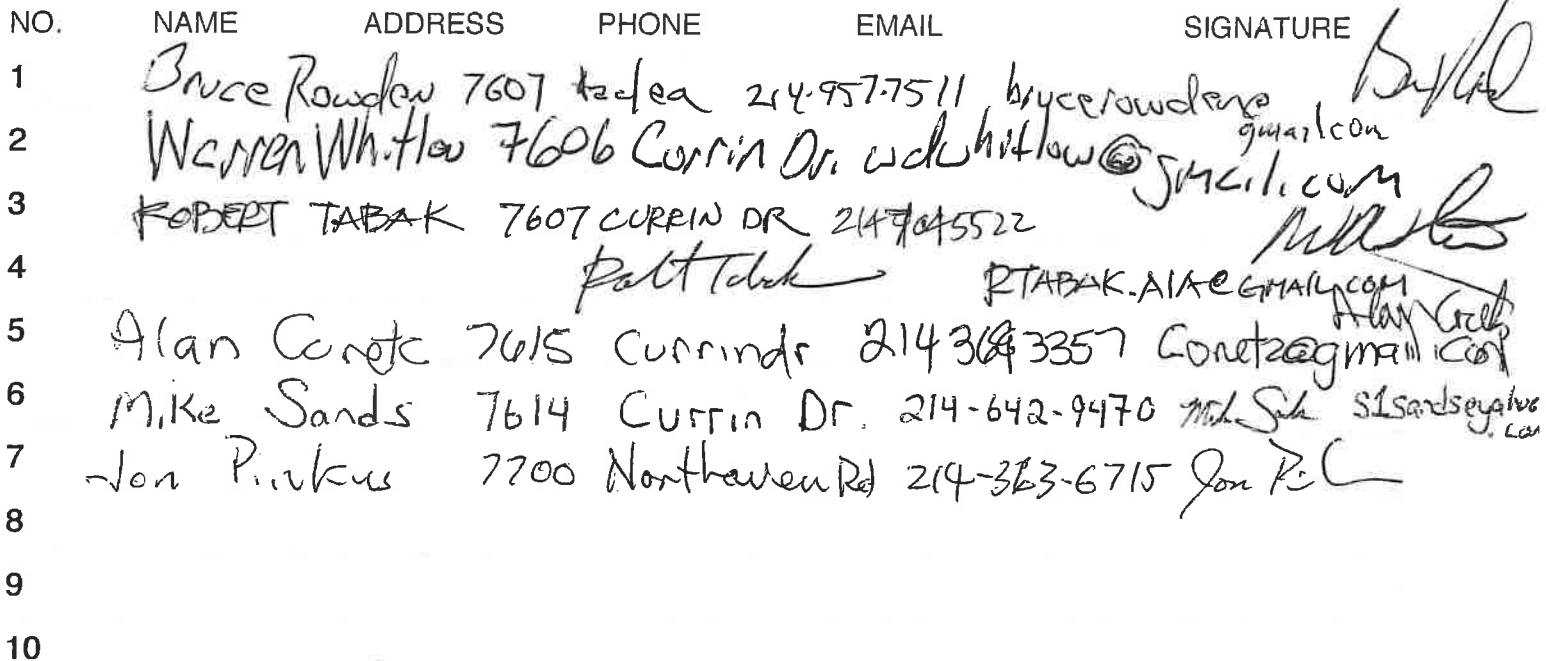 NO. NAME ADDRESS PHONE EMAIL SIGNATURE
1 Bruce Rowden 7607 214-957-7511 brycerowden@
gmail.com
2 Warren Whitlow 7606 Currin Dr. wdwhitlow@gmail.com
3 ROBERT TABAK 7607 CURRIN DR 2147045522
4 RTABAK.AIA@GMAIL.COM
5 Alan Coretz 7615 Currindr 214 3357 Coretz@gmail.com
6 Mike Sands 7614 Currin Dr. 214-642-9470
7 Jon Pinkus 7700 Northaven Rd 214-363-6715
8
9
10